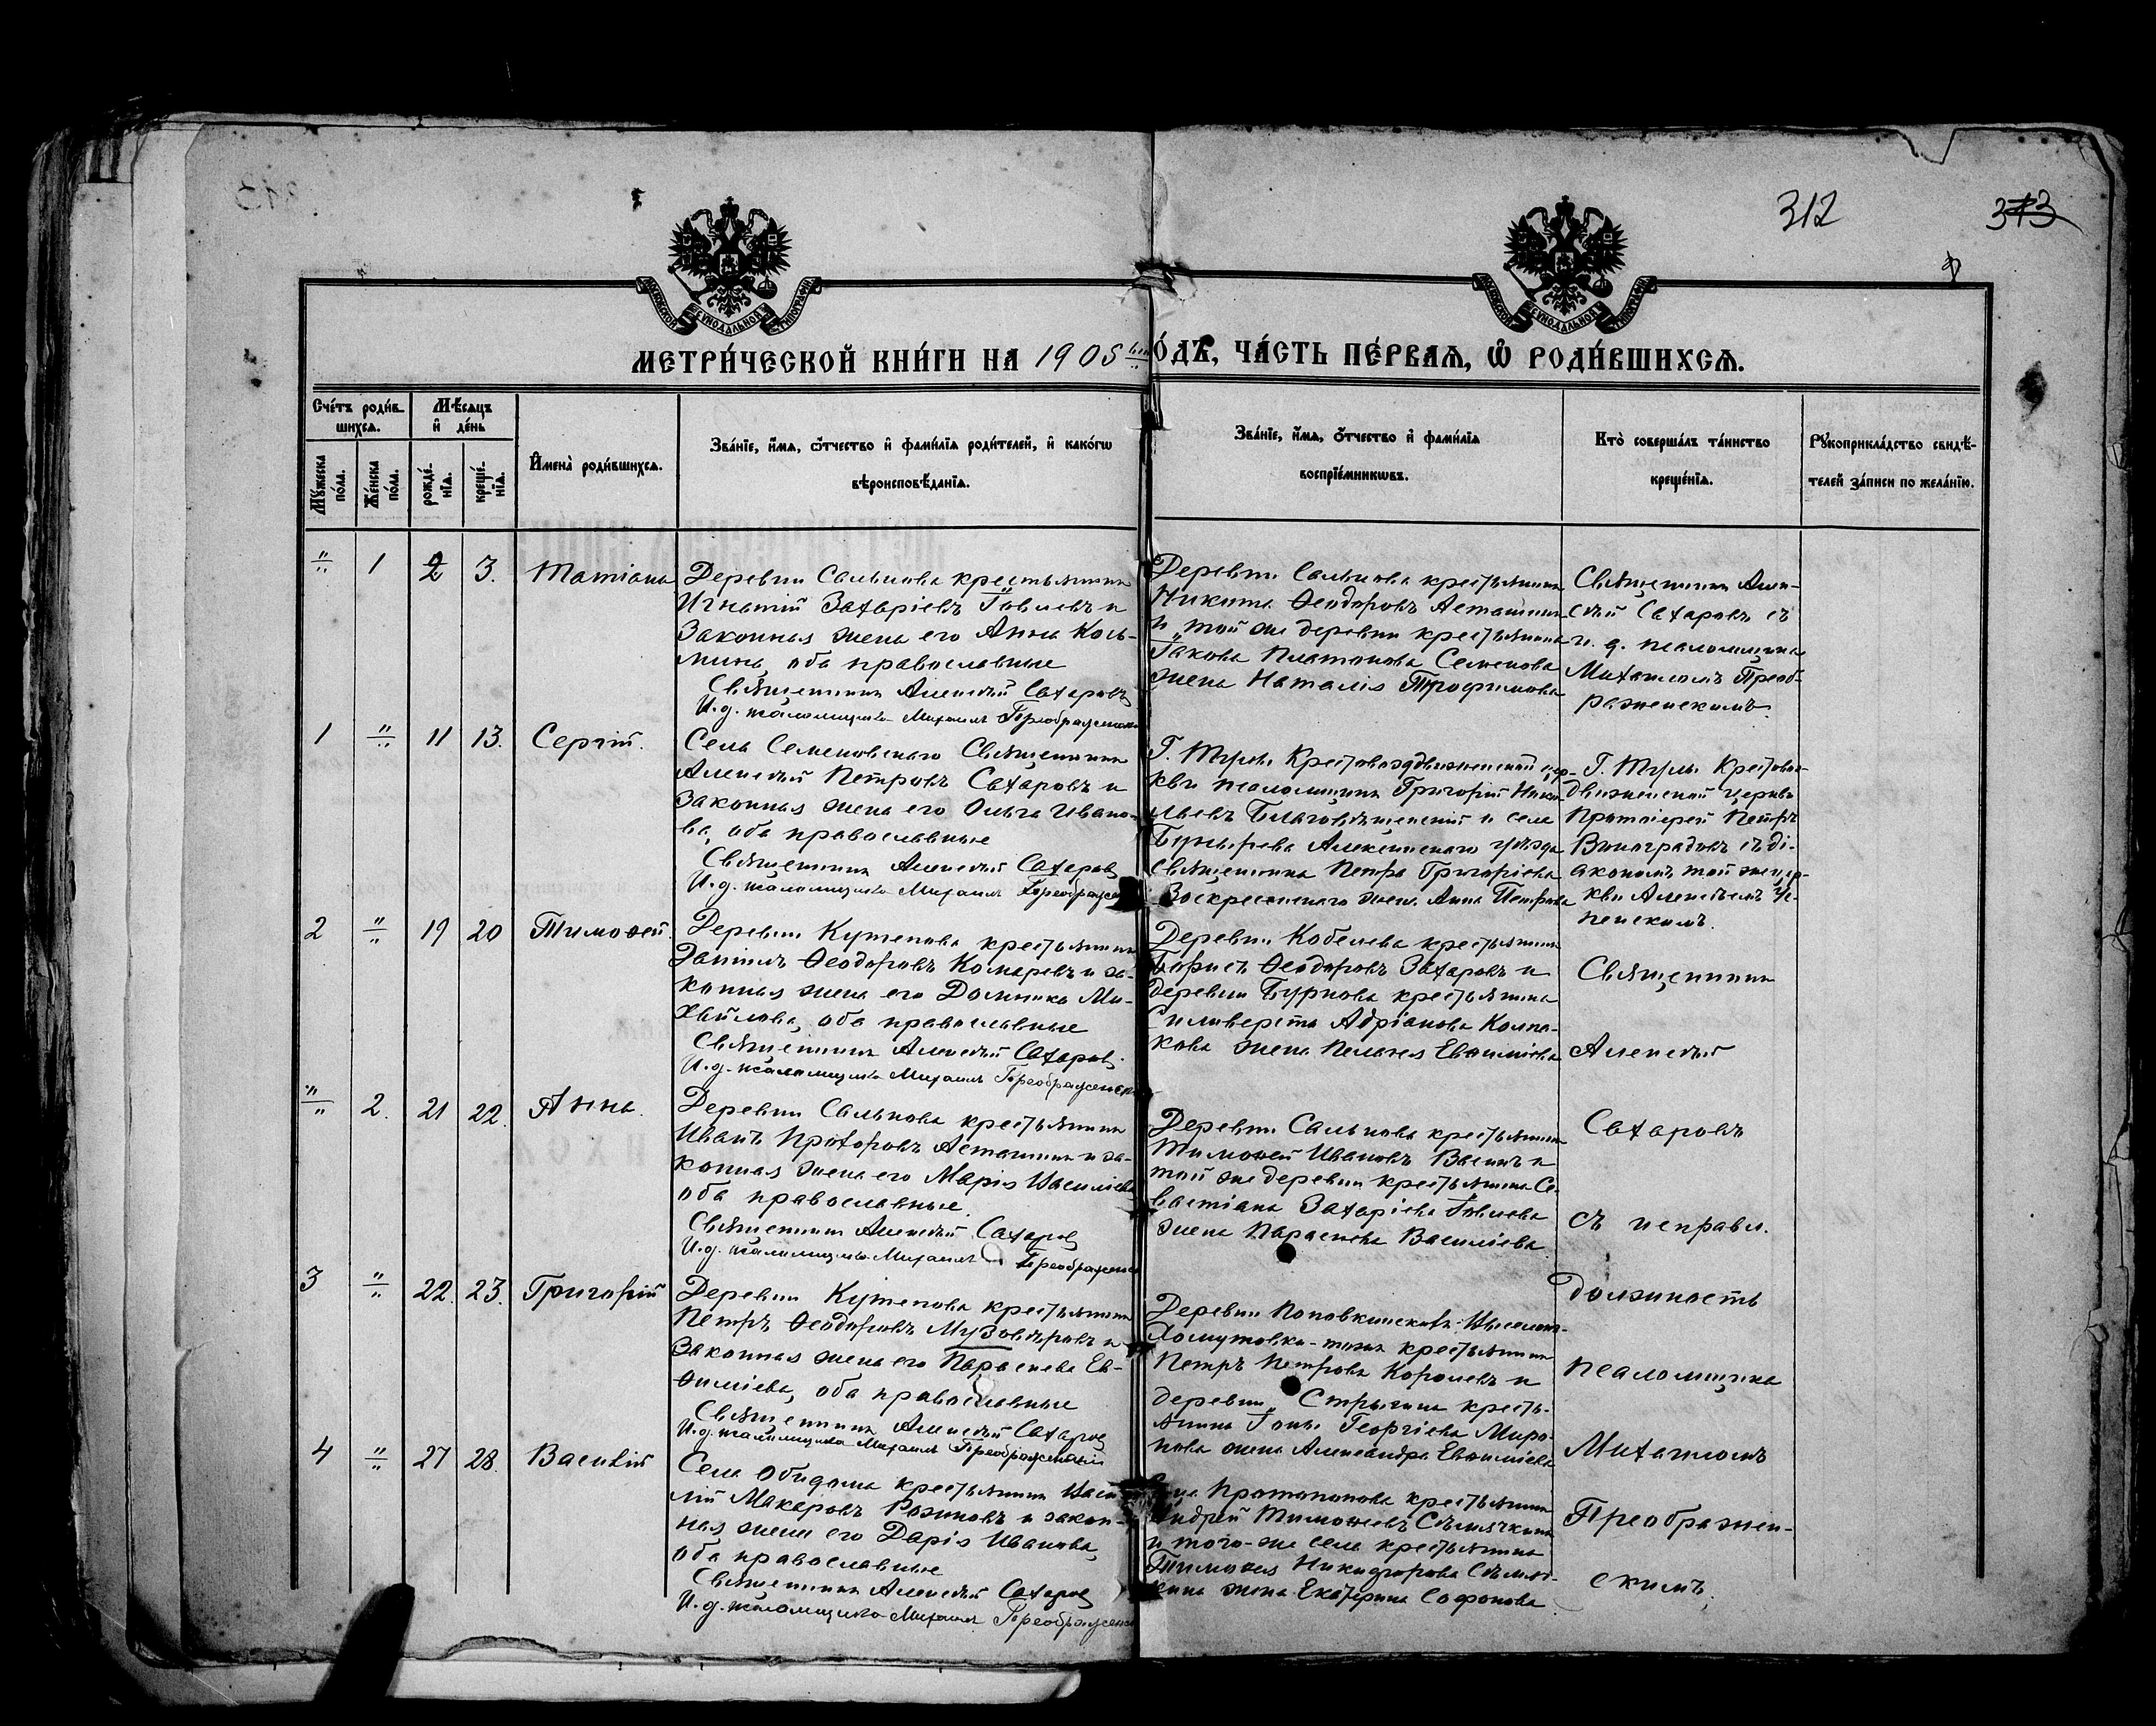 312
313
МОСКОВСКОЙ СѴНОДАЛЬНОЙ ТИПОГРАФІИ
МОСКОВСКОЙ СѴНОДАЛЬНОЙ ТИПОГРАФІИ
МЕТРИ́ЧЕСКОЙ КНИ́ГИ НА 1905 ГÓДЪ, ЧÁСТЬ ПÉРВАѦ, Ѡ҆ РОДИ́ВШИХСѦ.
Счéтъ роди́вшихсѧ.
Мꙋ́жеска по́ла.
Жéнска по́ла.
Мѣ́сѧцъ и҆ дéнь
рождé-нїѧ.
крещé-нїѧ.
И҆менà роди́вшихсѧ.
Звáнїе, и҆́мѧ, ѻ҆́тчество и҆ фами́лїѧ роди́телей, и҆ какóгѡ
вѣроисповѣ́данїѧ.
Звáнїе, и҆́мѧ, ѻ҆́тчество и҆ фами́лїѧ
воспрїéмникѡвъ.
Ктò совершáлъ тáинство
крещéнїѧ.
Рꙋкоприклáдство свидѣ́-
телей зáписи по желáнїю.
" 1 2 3. Татіана
Деревни Сальнова крестьянинъ
Игнатій Захаріевъ Іовлевъ и
законная жена его Анна Козь-
мина, оба православные
Священникъ Алексѣй Сахаровъ
И.д. псаломщика Михаилъ Преображенскій
Деревни Сальнова крестьянинъ
Никита Ѳеодоровъ Асташинъ
и той же деревни крестьянина
Іакова Платонова Семенова
жена Наталія Трофимова
Священникъ Алек-
сѣй Сахаровъ съ
и. д. псаломщика
Михаиломъ Преоб-
раженскимъ.
1 " 11 13. Сергій.
Села Семеновскаго Священникъ
Алексѣй Петровъ Сахаровъ и
законная жена его Ольга Ивано-
ва, оба православные
Священникъ Алексѣй Сахаровъ
И.д. псаломщика Михаилъ Преображенс
Г. Тулы Крестовоздвиженской цер-
кви псаломщикъ Григорій Нико-
лаевъ Благовѣщенскій и села
Бунырева Алексинскаго уѣзда
священника Петра Григоріева
Воскресенскаго жена Анна Петрова
Г. Тулы Крестовоз-
движенской церкви
Протоіерей Петръ
Виноградовъ съ ді-
акономъ той же цер-
кви Алексѣемъ Ус-
пенскимъ.
2 " 19 20 Тимоѳей.
Деревни Кутепова крестьянинъ
Даніилъ Ѳеодоровъ Комаревъ и за-
конная жена его Домника Ми-
хайлова, оба православные
Священникъ Алексѣй Сахаровъ.
И.д. псаломщика Михаилъ Преображенскі
Деревни Кобелева крестьянинъ
Борисъ Ѳеодоровъ Захаровъ и
деревни Буркова крестьянина
Силиверста Адріанова Колпа-
кова жена Пелагея Евѳиміева
Священникъ
Алексѣй
" 2. 21 22. Анна.
Деревни Сальнова крестьянинъ
Иванъ Прохоровъ Асташинъ и за-
конная жена его Марія Васильева
оба православные.
Священникъ Алексѣй Сахаровъ
И.д. псаломщика Михаилъ Преображенс
Деревни Сальнова крестьянинъ
Тимоѳей Ивановъ Васинъ и
той же деревни крестьянина Се-
вастіана Захаріева Іовлева
жена Параскева Василіева
Сахаровъ
съ исправл.
3 " 22. 23. Григорій
Деревни Кутепова крестьянинъ
Петръ Ѳеодоровъ Музовѣровъ и
законная жена его Параскева Ев-
ѳиміева, оба православные
Священникъ Алексѣй Сахаровъ
И.д. псаломщика Михаилъ Преображенскій
Деревни Поповкинскихъ-Выселокъ
Хомутовка-тожъ крестьянинъ
Петръ Петровъ Королевъ и
деревни Стрыгина кресть-
янина Іоны Георгіева Миро-
нова жена Александра Евѳиміева
должность
псаломщика
Михаиломъ
4 " 27 28. Василій
Села Обидома крестьянинъ Васи-
лій Макаровъ Розиновъ и закон-
ная жена его Дарія Иванова,
оба православные
Священникъ Алексѣй Сахаровъ
И.д. псаломщика Михаилъ Преображенс
Села Протопопова крестьянинъ
Андрей Тимоѳеевъ Сѣмячкинъ
и того-же села крестьянина
Тимоѳея Никифорова Сѣмяч-
кина жена Екатерина Софонова
Преображен-
скимъ.